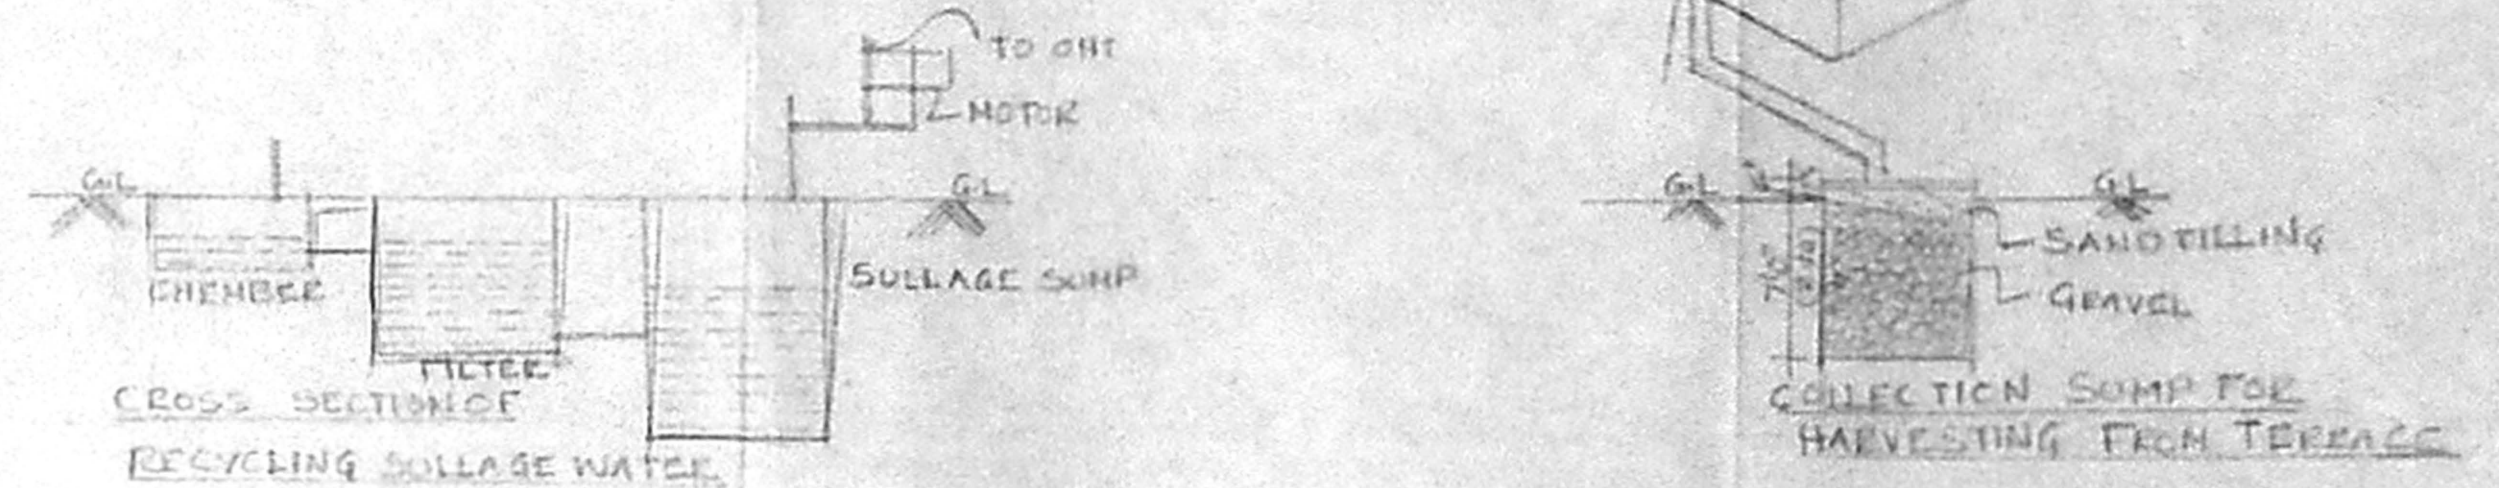 TO OHT
MOTOR
G.L
G.L
CHEMBER
SULLAGE SUMP
FILTER
CROSS SECTION OF
RECYCLING SULLAGE WATER
G.L
G.L
SAND FILLING
GRAVEL
COLLECTION SUMP FOR
HARVESTING FROM TERRACE